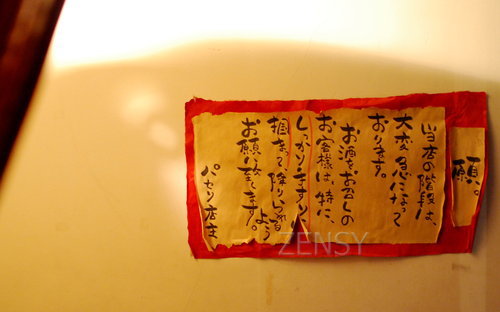 願い
当店の階段は、
大変急になって
おります。
お酒をお召しの
お客様は、特に、
しっかり手すりに
掴まって降りられるよう
お願い致します。
パセリ店主
ZENSY